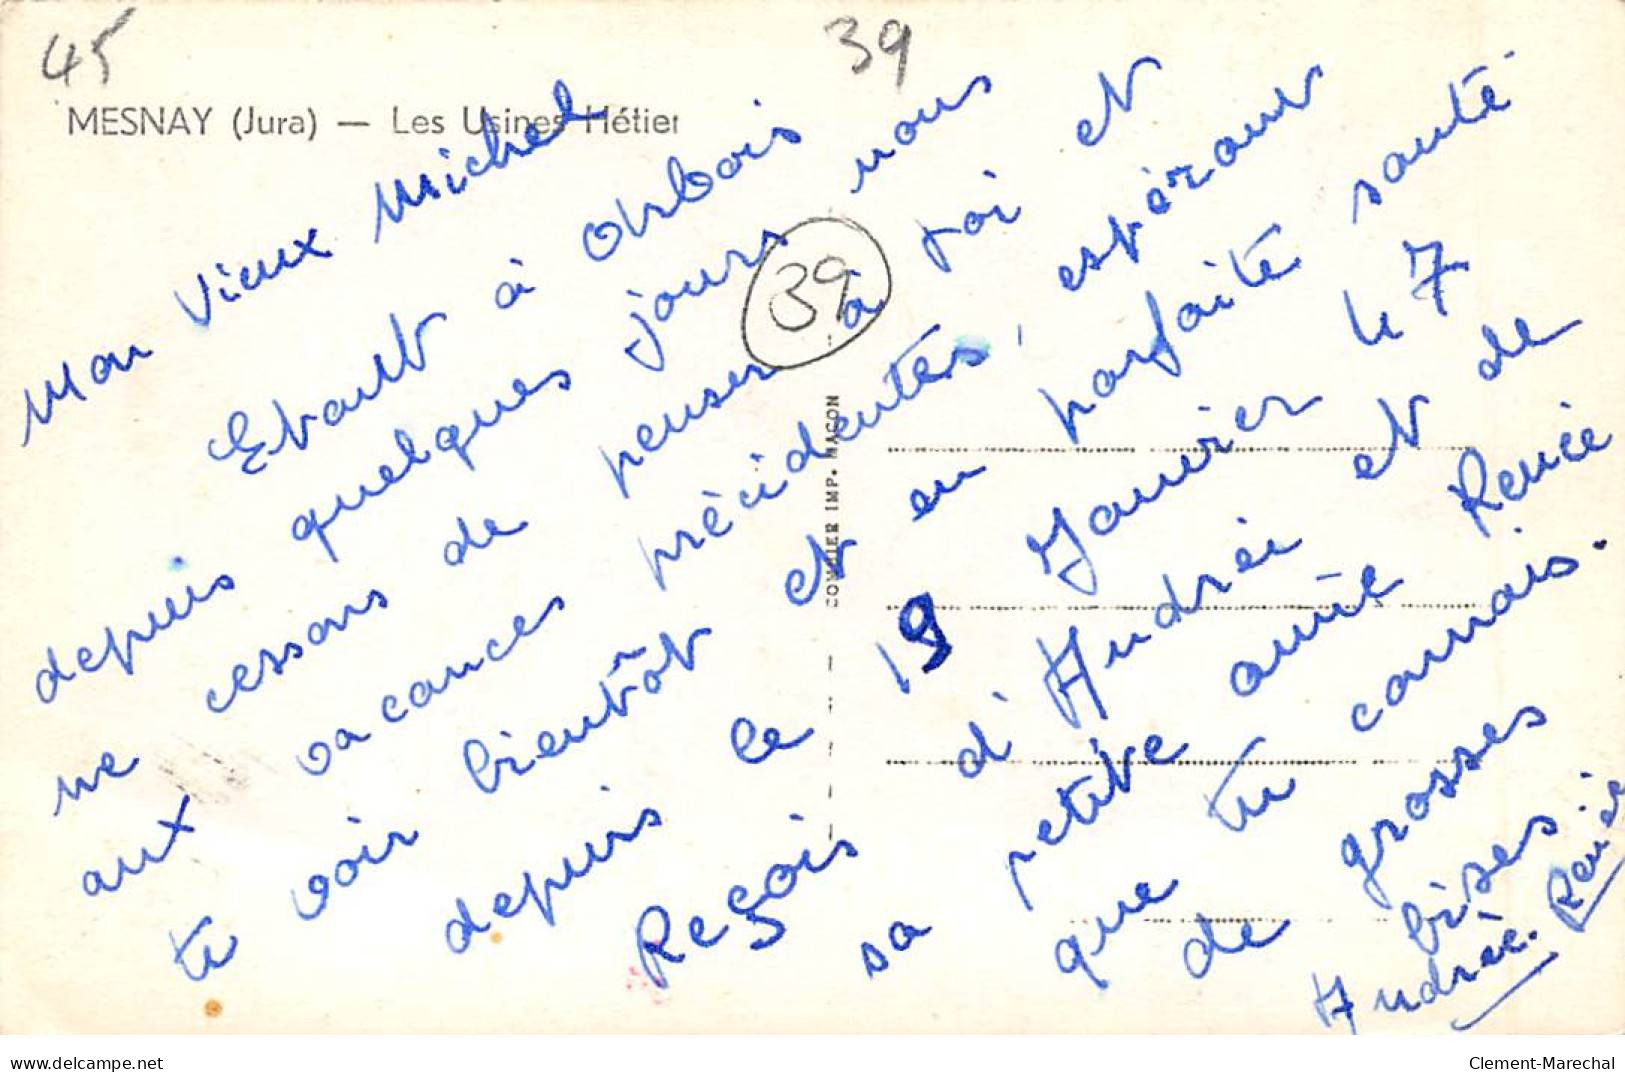 45
39
MESNAY (Jura) — Les Usines Hétier
Mon Vieux Michel
Etant à Arbois
depuis quelques jours nous
ne cessons de penser à toi et
aux vacances précidentes, espérant
te voir bientôt et en parfaite santé
depuis le 19 Janvier 47
Reçois d'Andrée et de
sa petite amie Renée
que tu connais.
de grosses
bises
Andrée. Renée
39
COMBIER IMP. MACON
www.delcampe.net
Clement-Marechal